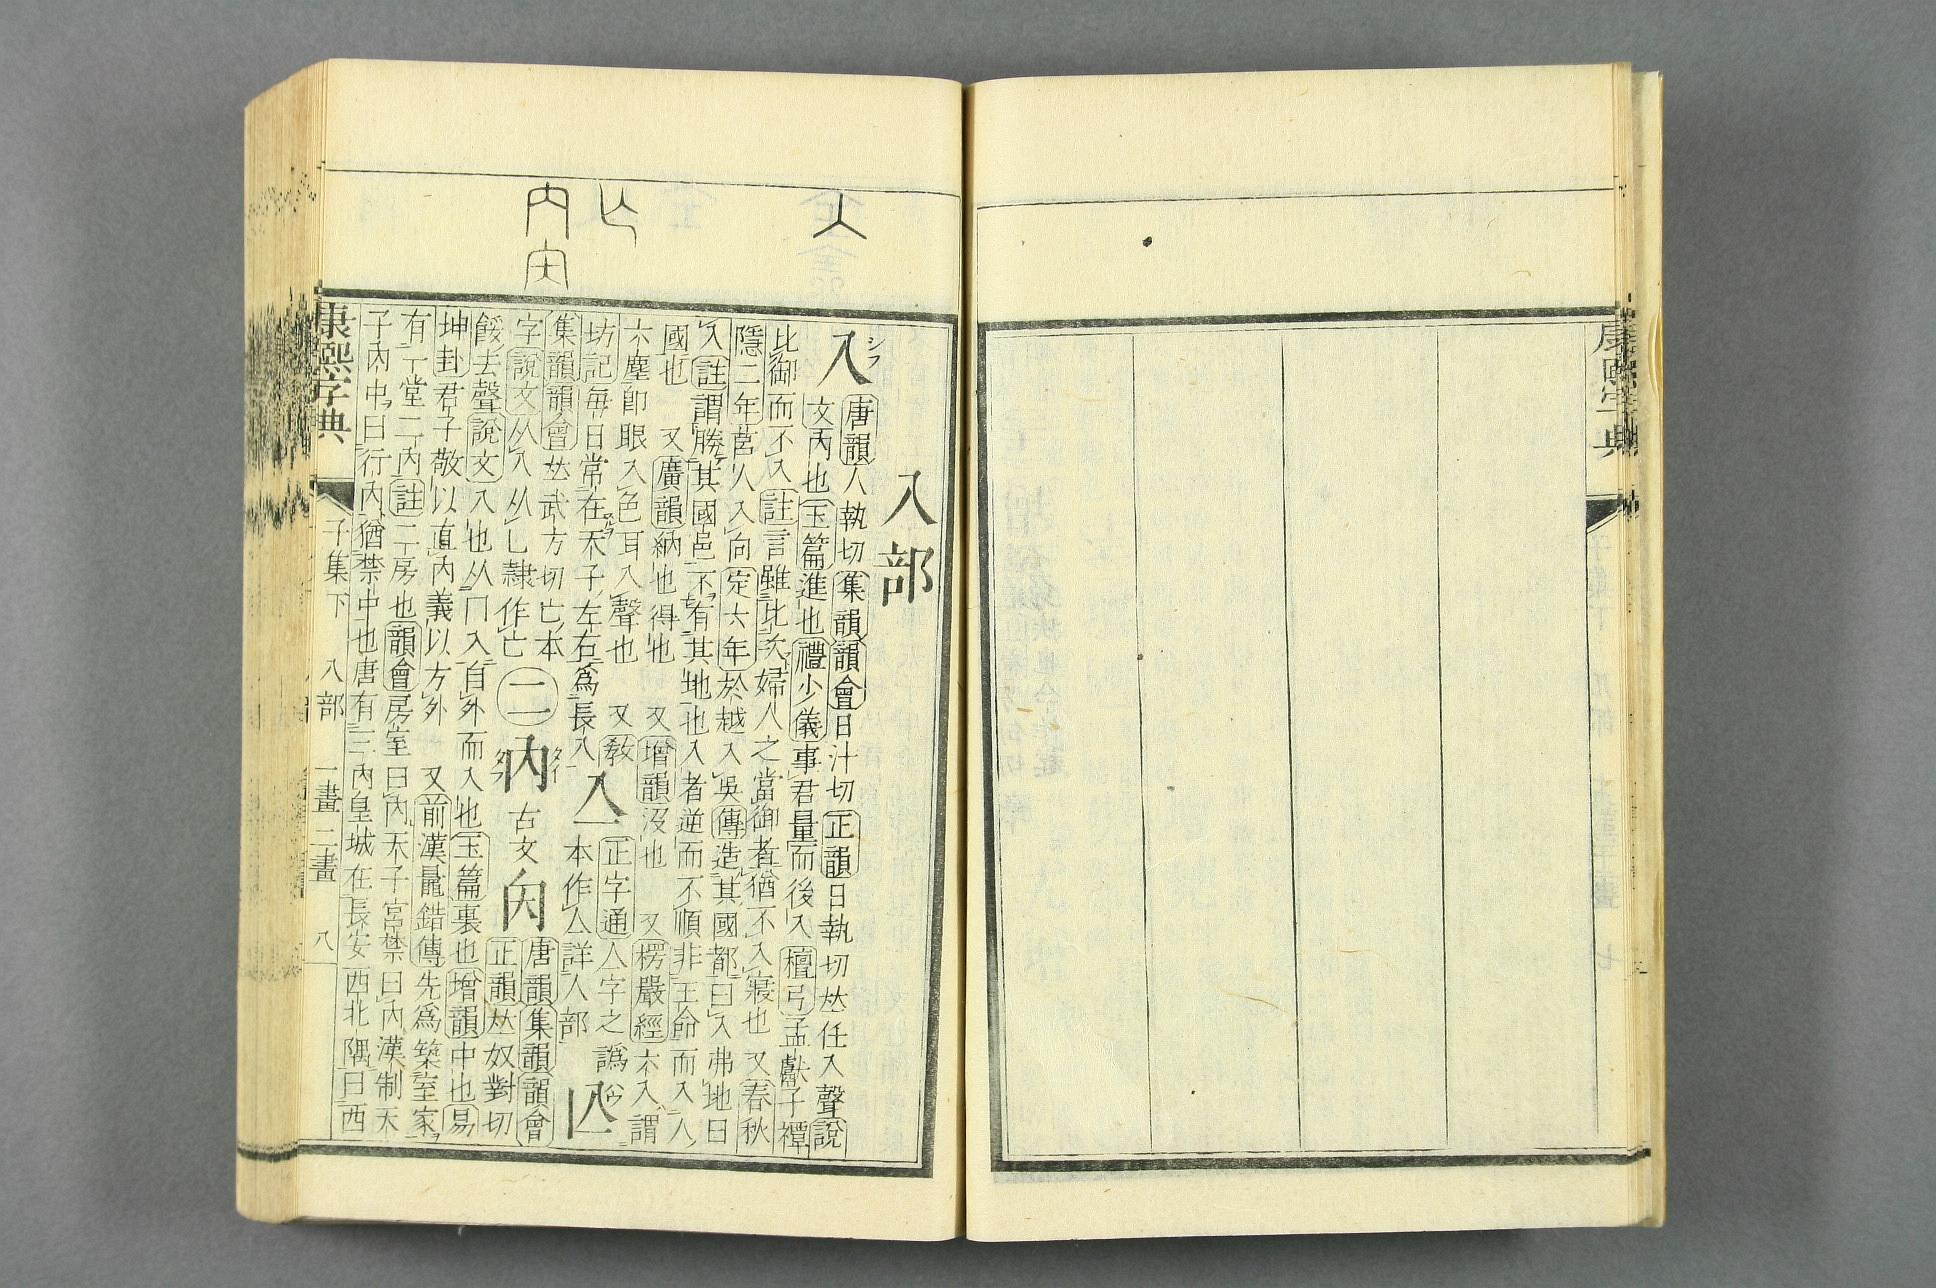 康熙字典
入部
入 唐韻人執切集韻韻會日汁切正韻日執切𠀤任入聲說
文內也玉篇進也禮少儀事君量而後入檀弓孟獻子禫
比御而不入註言雖比次婦人之當御者猶不入寢也又春秋
隱二年莒人入向定六年於越入吳傳造其國都曰入弗地曰
入註謂勝其國邑不有其地也入者逆而不順非王命而入人
國也又廣韻納也得也又增韻沒也又楞嚴經六入謂
六塵卽眼入色耳入聲也又敎
坊記每日常在天子左右爲長入
亼 正字通亼字之譌
本作亼詳人部
亾
集韻韻會𠀤武方切亡本
字說文从入从乚隸作亡
二
內 古文㕯
唐韻集韻韻會
正韻𠀤奴對切
餒去聲說文入也从冂入自外而入也玉篇裏也增韻中也易
坤卦君子敬以直內義以方外又前漢鼂錯傳先爲築室家
有一堂二內註二房也韻會房室曰內天子宮禁曰內漢制天
子內中曰行內猶禁中也唐有三內皇城在長安西北隅曰西
康熙字典
子集下 入部 一畫二畫 八